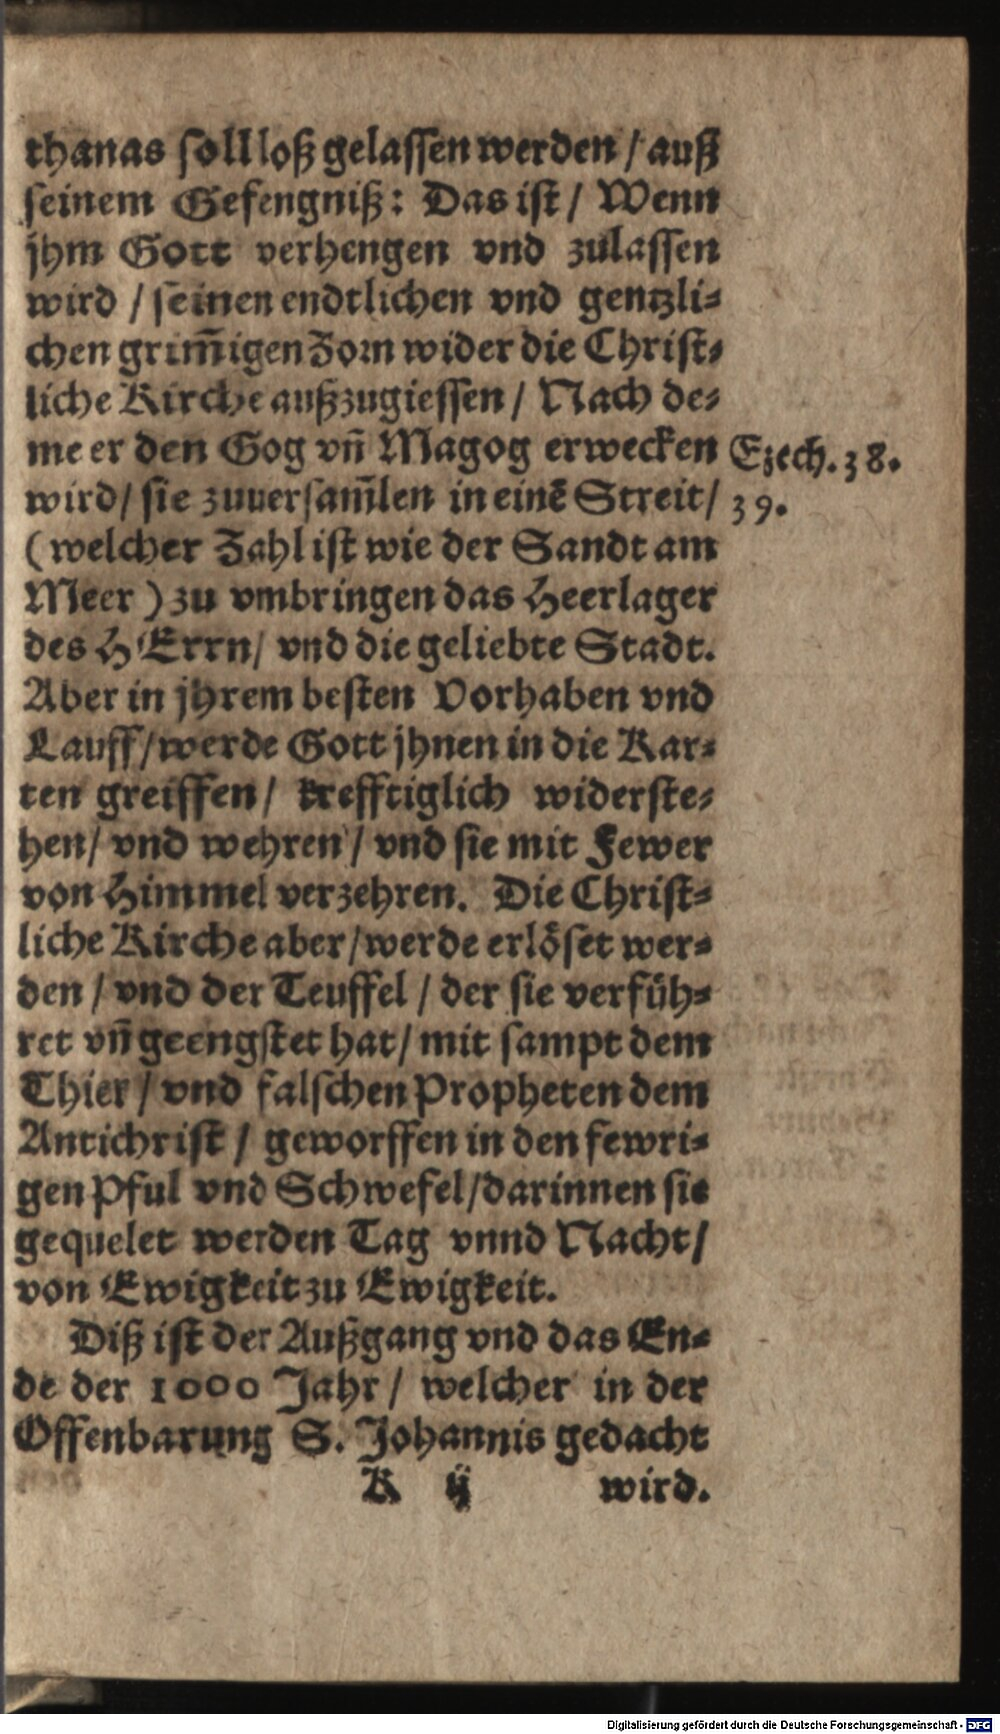 thanas soll loß gelassen werden / auß
seinem Gefengniß: Das ist / Wenn
jhm Gott verhengen vnd zulassen
wird / seinen endtlichen vnd gentzli⸗
chen grim̄igen Zorn wider die Christ⸗
liche Kirche außzugiessen / Nach de⸗
me er den Gog vn̄ Magog erwecken
wird / sie zuuersam̄len in einē Streit /
Ezech. 38.
39.
(welcher Zahl ist wie der Sandt am
Meer) zu vmbringen das Heerlager
des HErrn / vnd die geliebte Stadt.
Aber in jhrem besten Vorhaben vnd
Lauff / werde Gott jhnen in die Kar⸗
ten greiffen / krefftiglich widerste⸗
hen / vnd wehren / vnd sie mit Fewer
von Himmel verzehren. Die Christ⸗
liche Kirche aber / werde erlöset wer⸗
den / vnd der Teuffel / der sie verfüh⸗
ret vn̄ geengstet hat / mit sampt dem
Thier / vnd falschen Propheten dem
Antichrist / geworffen in den fewri⸗
gen Pful vnd Schwefel / darinnen sie
gequelet werden Tag vnnd Nacht /
von Ewigkeit zu Ewigkeit.
Diß ist der Außgang vnd das En⸗
de der 1000 Jahr / welcher in der
Offenbarung S. Johannis gedacht
K ij wird.
Digitalisierung gefördert durch die Deutsche Forschungsgemeinschaft - DFG